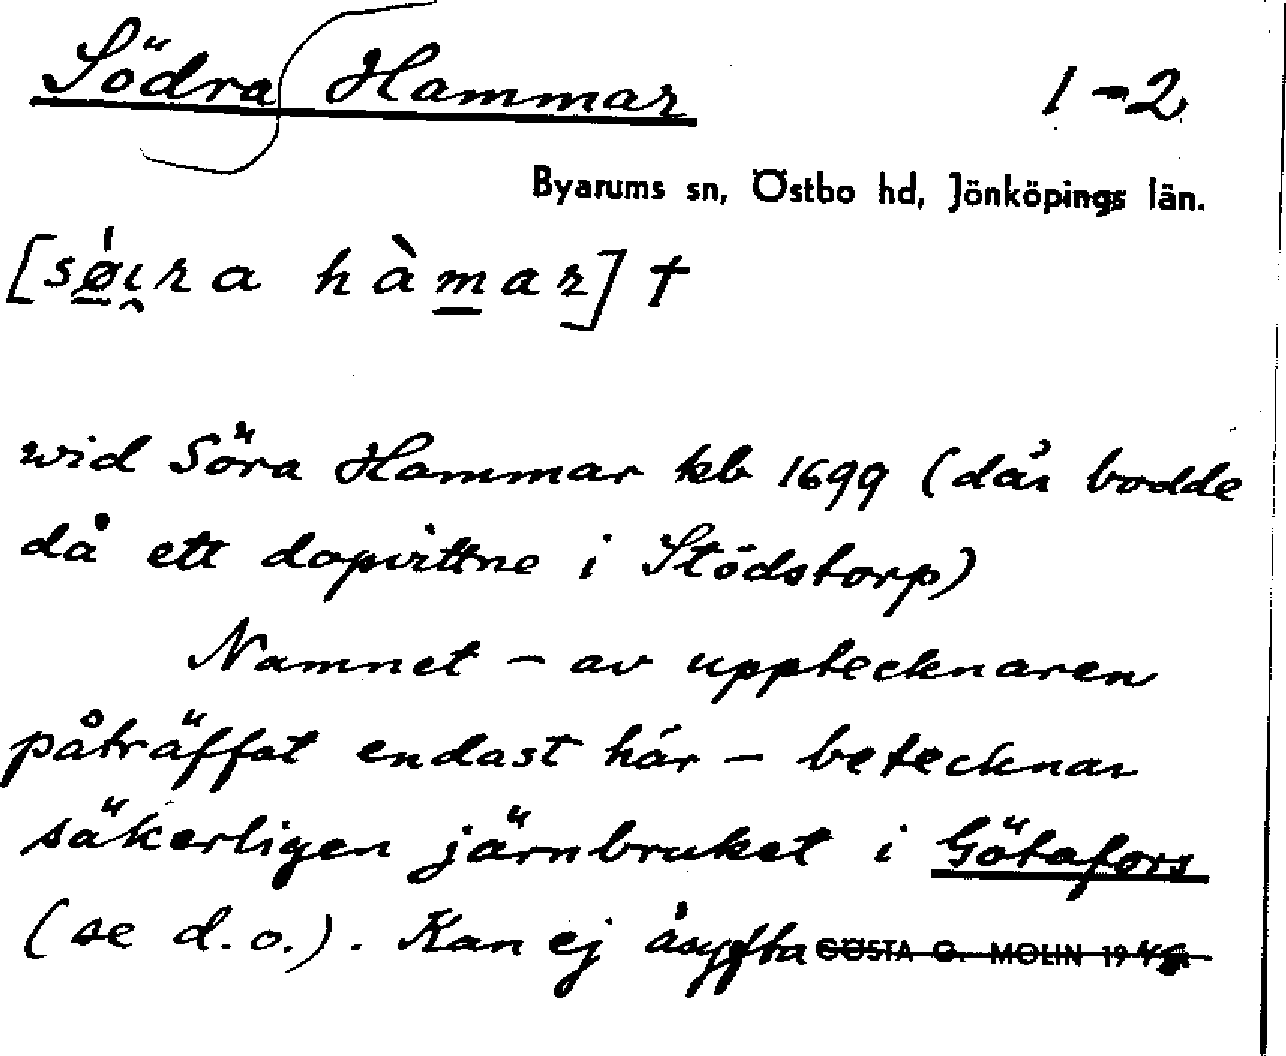 Södra Hammar 1-2
Byarums sn, Östbo hd, Jönköpings län.
[sø̀i̯ra hàmar] †
wid Söra Hammar kb 1699 (där bodde
då ett dopvittne i Stödstorp)
Namnet – av upptecknaren
påträffat endast här – betecknar
säkerligen järnbruket i Götafors
(se d.o.). Kan ej åsyfta GÖSTA O. MOLIN 19